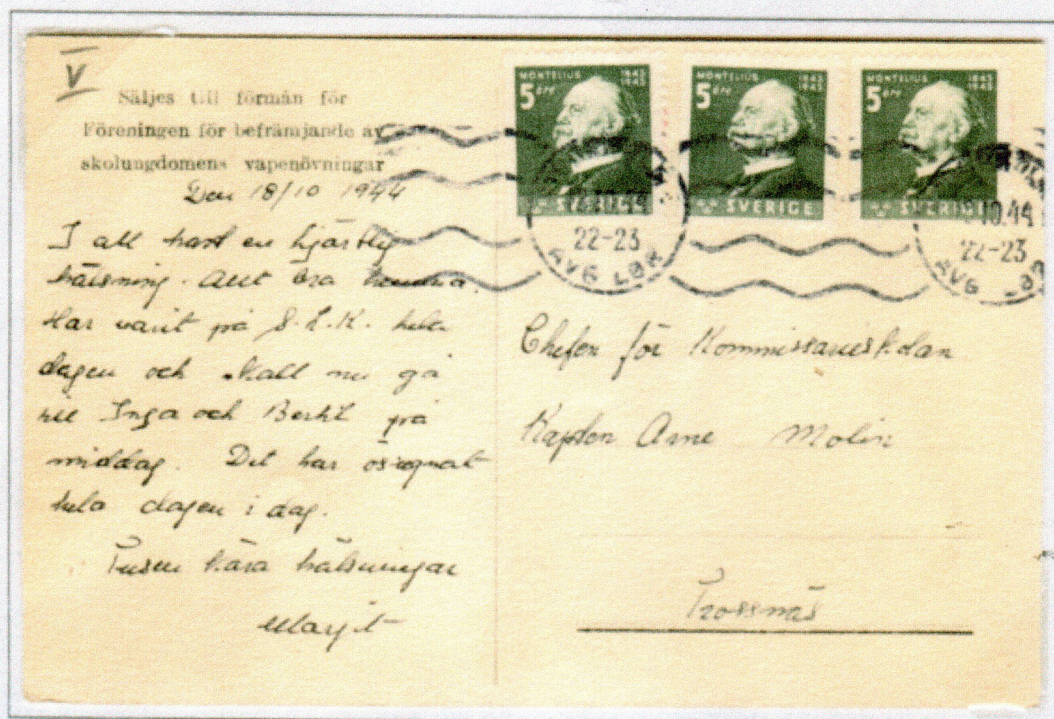 V
Säljes till förmån för
Föreningen för befrämjande av
skolungdomens vapenövningar
Den 18/10 1944
I all hast en hjärtlig
hälsning. Allt bra hemma.
Har varit på S.L.K. hela
dagen och skall nu gå
till Inga och Bertil på
middag. Det har ösregnat
hela dagen i dag.
Tusen kära hälsningar
Margit
MONTELIUS 1843 1943
5 öre
SVERIGE
MONTELIUS 1843 1943
5 öre
SVERIGE
MONTELIUS 1843 1943
5 öre
SVERIGE
22-23
AVG LBR
10.44
22-23
AVG
Chefen för Kommissarieskolan
Kapten Arne Molin
Trossnäs